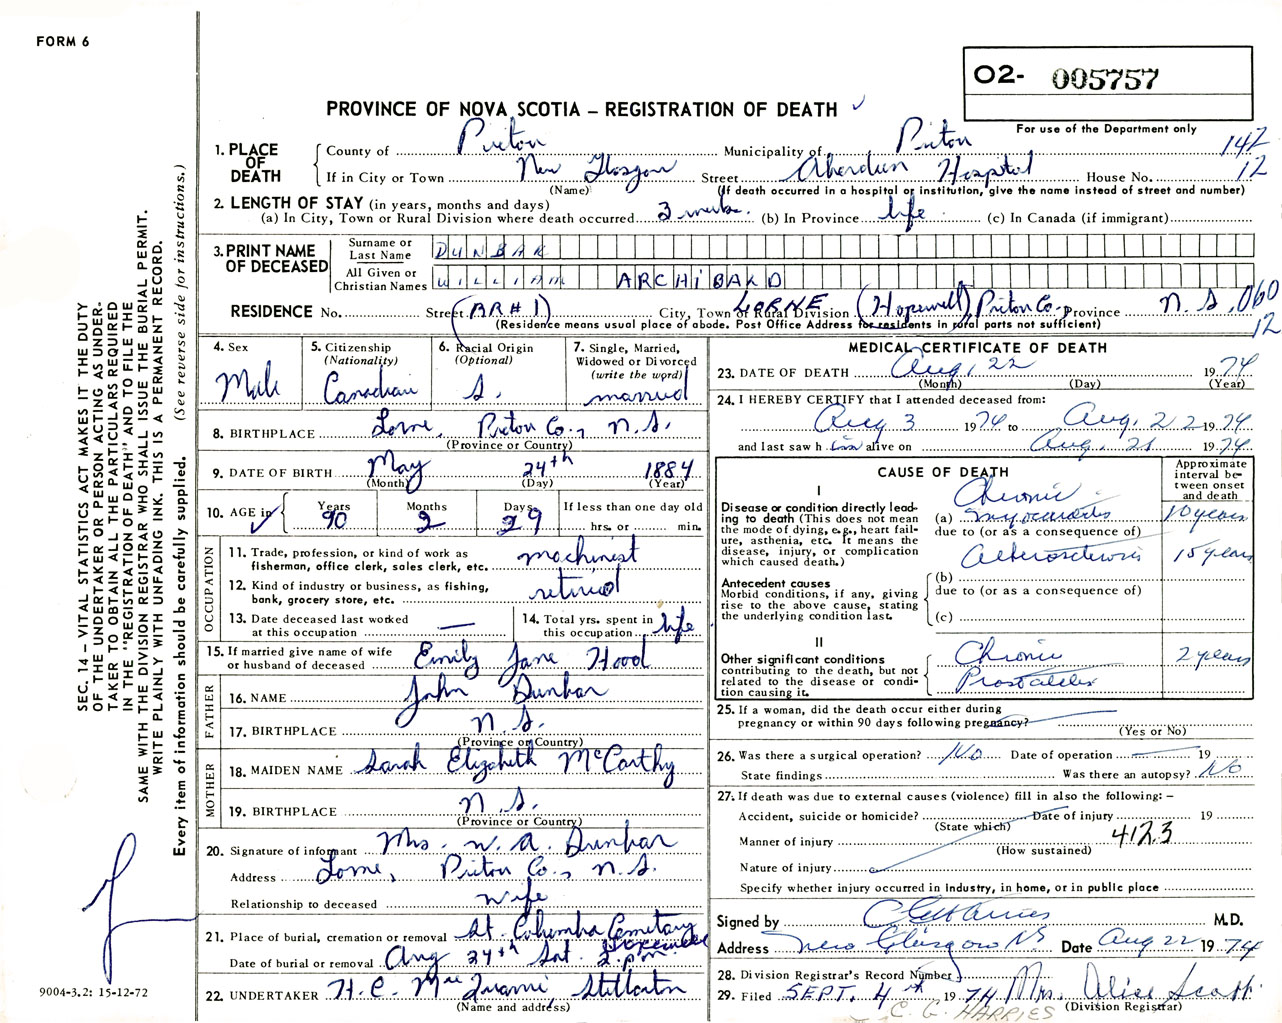 FORM 6
O2- 005757
PROVINCE OF NOVA SCOTIA – REGISTRATION OF DEATH
For use of the Department only
1. PLACE OF DEATH
County of Pictou Municipality of Pictou 142
If in City or Town New Glasgow Street Aberdeen Hospital House No. 12
(Name) (If death occurred in a hospital or institution, give the name instead of street and number)
2. LENGTH OF STAY (in years, months and days)
(a) In City, Town or Rural Division where death occurred 3 weeks (b) In Province life (c) In Canada (if immigrant)
3. PRINT NAME OF DECEASED
Surname or Last Name DUNBAR
All Given or Christian Names WILLIAM ARCHIBALD
RESIDENCE No. Street (RR#1) City, Town or Rural Division LORNE (Hopewell) Pictou Co. Province N.S. 060
(Residence means usual place of abode. Post Office Address for residents in rural parts not sufficient) 12
4. Sex
Male
5. Citizenship
(Nationality)
Canadian
6. Racial Origin
(Optional)
S.
7. Single, Married,
Widowed or Divorced
(write the word)
married
8. BIRTHPLACE Lorne, Pictou Co., N.S.
(Province or Country)
9. DATE OF BIRTH May 24th 1884
(Month) (Day) (Year)
10. AGE in
Years 90
Months 2
Days 29
If less than one day old
hrs. or min.
OCCUPATION
11. Trade, profession, or kind of work as
fisherman, office clerk, sales clerk, etc. machinist
12. Kind of industry or business, as fishing,
bank, grocery store, etc. retired
13. Date deceased last worked
at this occupation —
14. Total yrs. spent in
this occupation life
15. If married give name of wife
or husband of deceased Emily Jane Hood
FATHER
16. NAME John Dunbar
17. BIRTHPLACE N.S.
(Province or Country)
MOTHER
18. MAIDEN NAME Sarah Elizabeth McCarthy
19. BIRTHPLACE N.S.
(Province or Country)
20. Signature of informant Mrs. W. A. Dunbar
Address Lorne, Pictou Co., N.S.
Relationship to deceased wife
21. Place of burial, cremation or removal St. Columba Cemetary Hopewell
Date of burial or removal Aug 24th Sat. 2 p.m.
22. UNDERTAKER H. C. Mac Stellarton
(Name and address)
MEDICAL CERTIFICATE OF DEATH
23. DATE OF DEATH Aug. 22 1974
(Month) (Day) (Year)
24. I HEREBY CERTIFY that I attended deceased from:
Aug 3 1974 to Aug. 22 1974
and last saw him alive on Aug. 21 1974
CAUSE OF DEATH
Approximate
interval be-
tween onset
and death
I
Disease or condition directly lead-
ing to death (This does not mean
the mode of dying, e.g., heart fail-
ure, asthenia, etc. It means the
disease, injury, or complication
which caused death.)
Chronic
(a) myocarditis 10 years
due to (or as a consequence of)
Atherosclerosis 15 years
Antecedent causes
Morbid conditions, if any, giving
rise to the above cause, stating
the underlying condition last.
(b)
due to (or as a consequence of)
(c)
II
Other significant conditions
contributing to the death, but not
related to the disease or condi-
tion causing it.
Chronic 2 years
Prostatitis
25. If a woman, did the death occur either during
pregnancy or within 90 days following pregnancy?
(Yes or No)
26. Was there a surgical operation? No Date of operation — 19
State findings Was there an autopsy? No
27. If death was due to external causes (violence) fill in also the following: –
Accident, suicide or homicide? Date of injury 19
(State which)
Manner of injury 412.3
(How sustained)
Nature of injury
Specify whether injury occurred in industry, in home, or in public place
Signed by C G Harries M.D.
Address New Glasgow NS Date Aug 22 1974
28. Division Registrar's Record Number
29. Filed SEPT. 4th 1974 Mrs. Alice Scott
(Division Registrar)
C. G. HARRIES
SEC. 14 – VITAL STATISTICS ACT MAKES IT THE DUTY
OF THE UNDERTAKER OR PERSON ACTING AS UNDER-
TAKER TO OBTAIN ALL THE PARTICULARS REQUIRED
IN THE "REGISTRATION OF DEATH" AND TO FILE THE
SAME WITH THE DIVISION REGISTRAR WHO SHALL ISSUE THE BURIAL PERMIT.
WRITE PLAINLY WITH UNFADING INK. THIS IS A PERMANENT RECORD.
Every item of information should be carefully supplied. (See reverse side for instructions.)
9004-3.2: 15-12-72